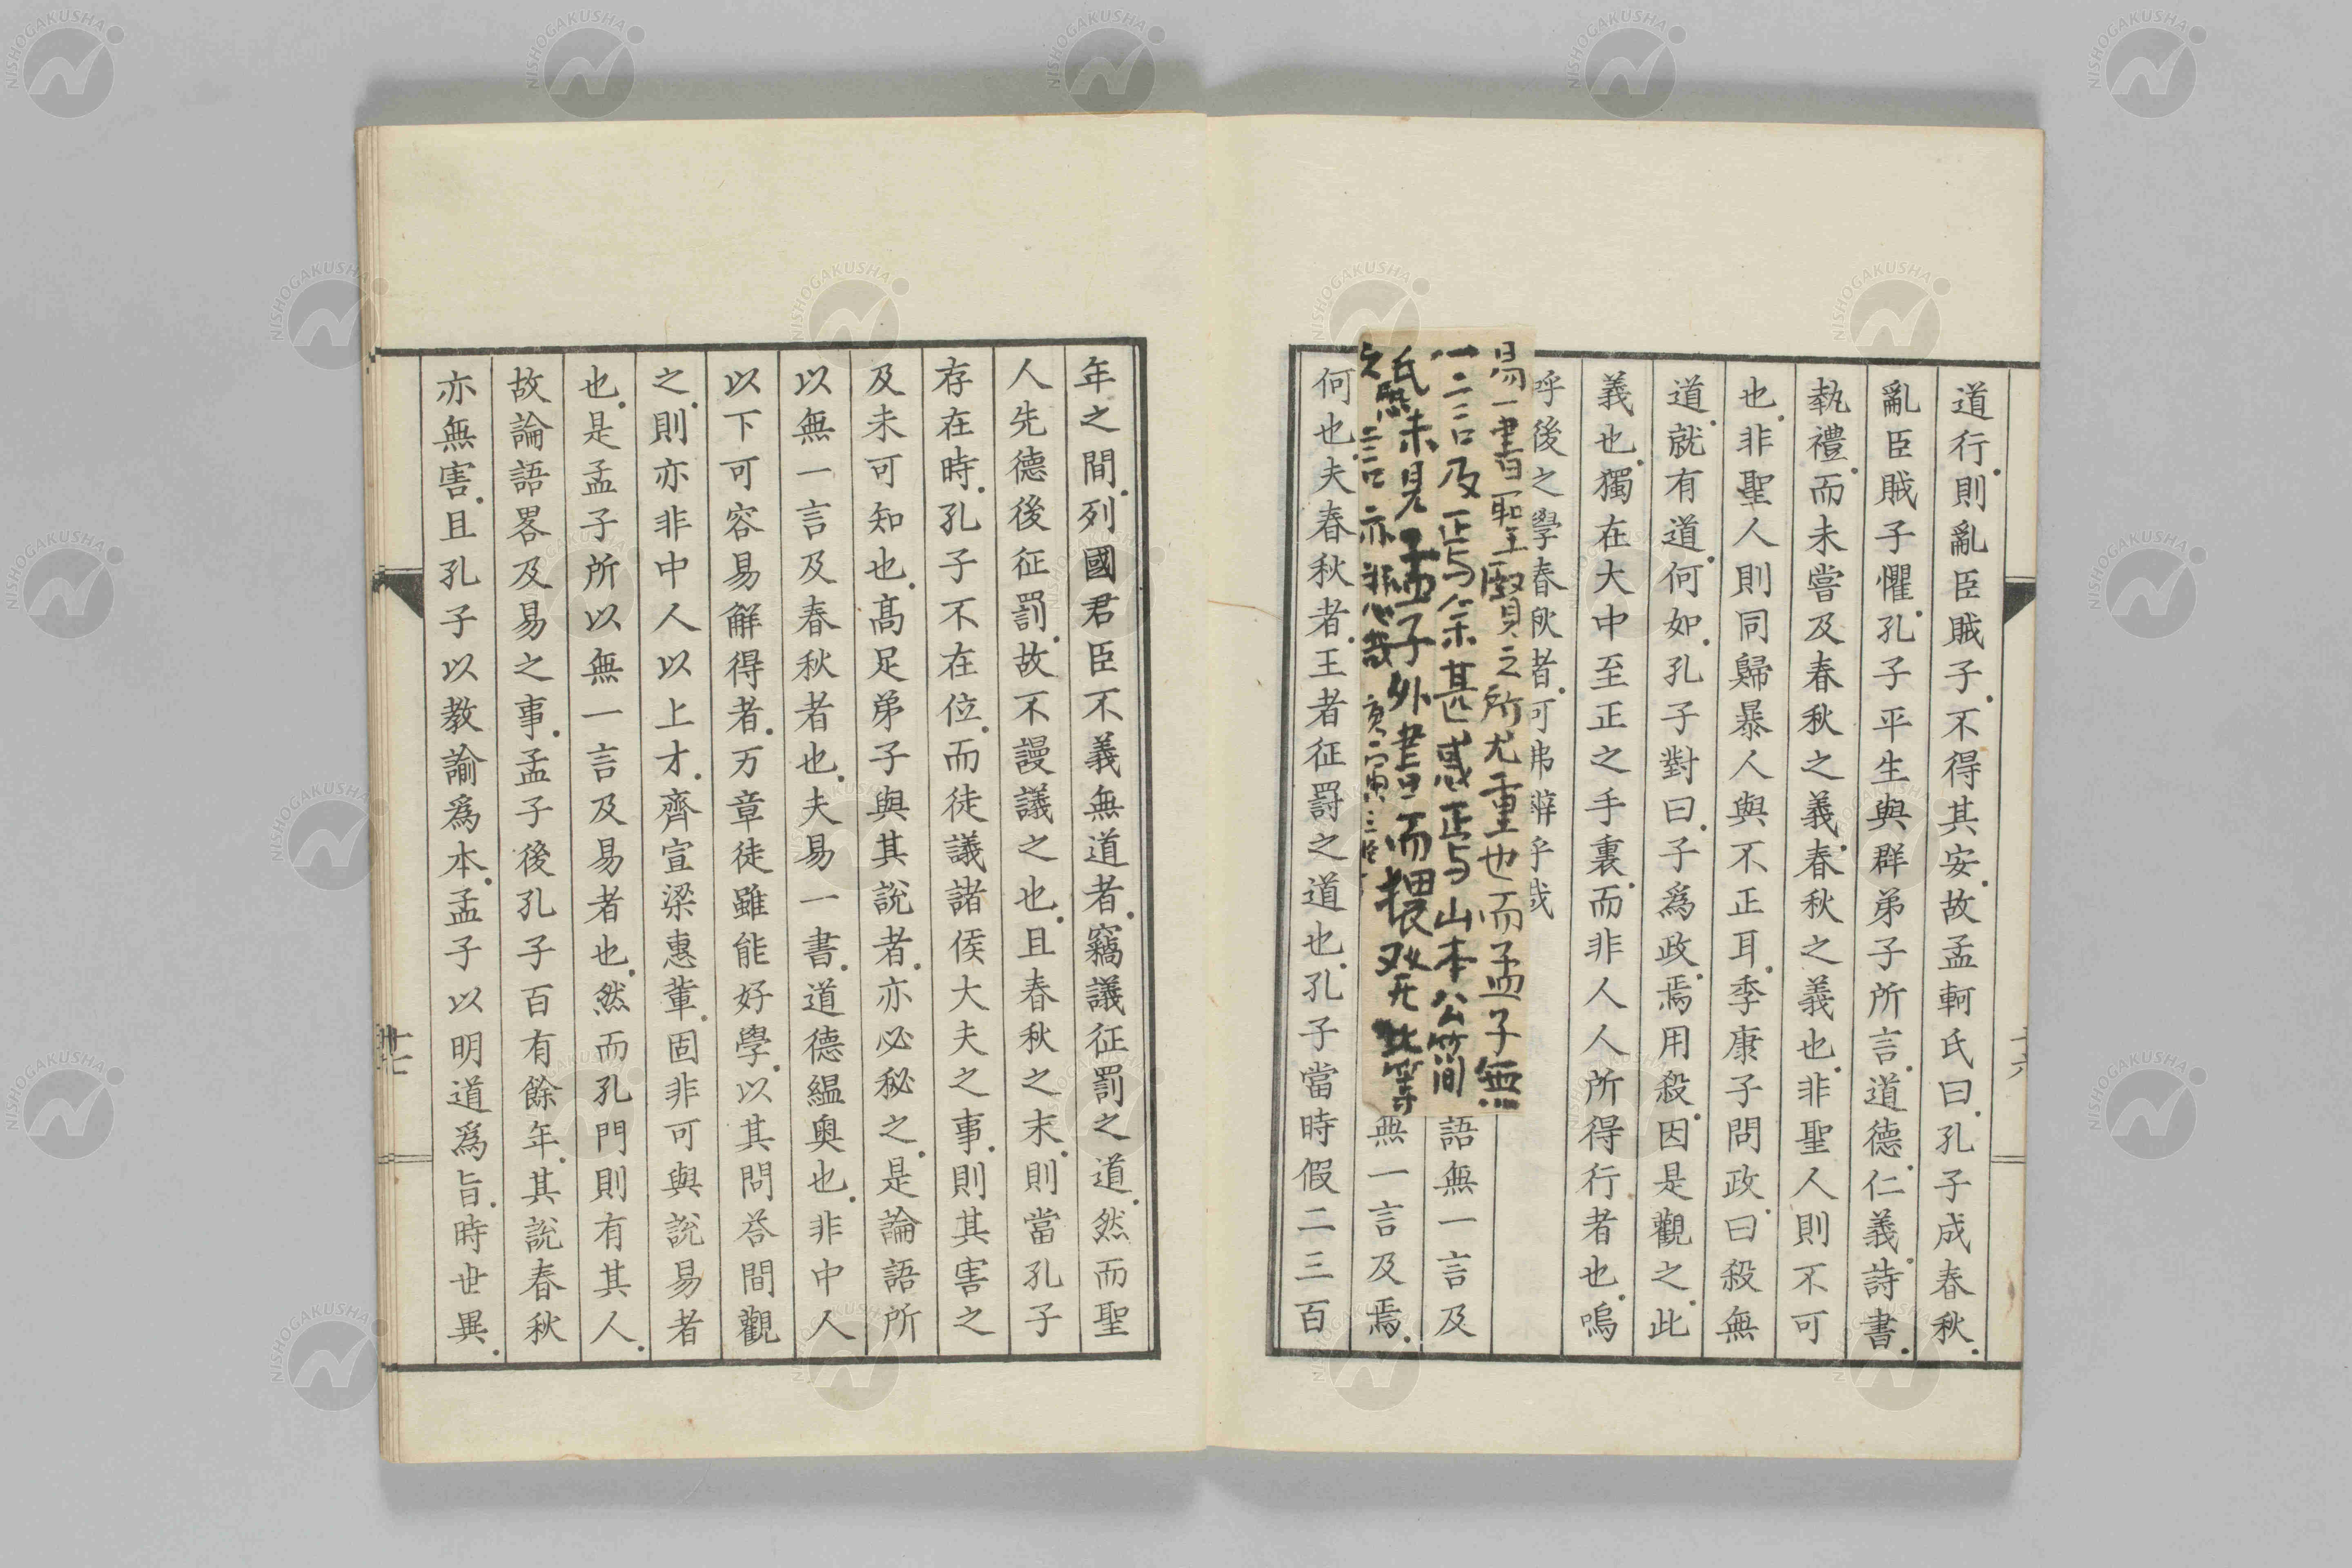 道行則亂臣賊子不得其安故孟軻氏曰孔子成春秋
亂臣賊子懼孔子平生與群弟子所言道德仁義詩書
執禮而未嘗及春秋之義春秋之義也非聖人則不可
也非聖人則同歸暴人與不正耳季康子問政曰殺無
道就有道何如孔子對曰子爲政焉用殺因是觀之此
義也獨在大中至正之手裏而非人人所得行者也嗚
呼後之學春秋者可弗辨乎哉
易一書聖賢之所尤重也而孟子無
一言及焉余甚惑焉与山本公簡
氏未見孟子外書而猥
之無言亦悲哉
語無一言及
無一言及焉
何也夫春秋者王者征罰之道也孔子當時假二三百
十六
年之間列國君臣不義無道者竊議征罰之道然而聖
人先德後征罰故不謾議之也且春秋之末則當孔子
存在時孔子不在位而徒議諸侯大夫之事則其害之
及未可知也高足弟子與其說者亦必秘之是論語所
以無一言及春秋者也夫易一書道德縕奥也非中人
以下可容易解得者万章徒雖能好學以其問荅間觀
之則亦非中人以上才齊宣梁惠輩固非可與說易者
也是孟子所以無一言及易者也然而孔門則有其人
故論語畧及易之事孟子後孔子百有餘年其說春秋
亦無害且孔子以教諭爲本孟子以明道爲旨時世異
NISHOGAKUSHA